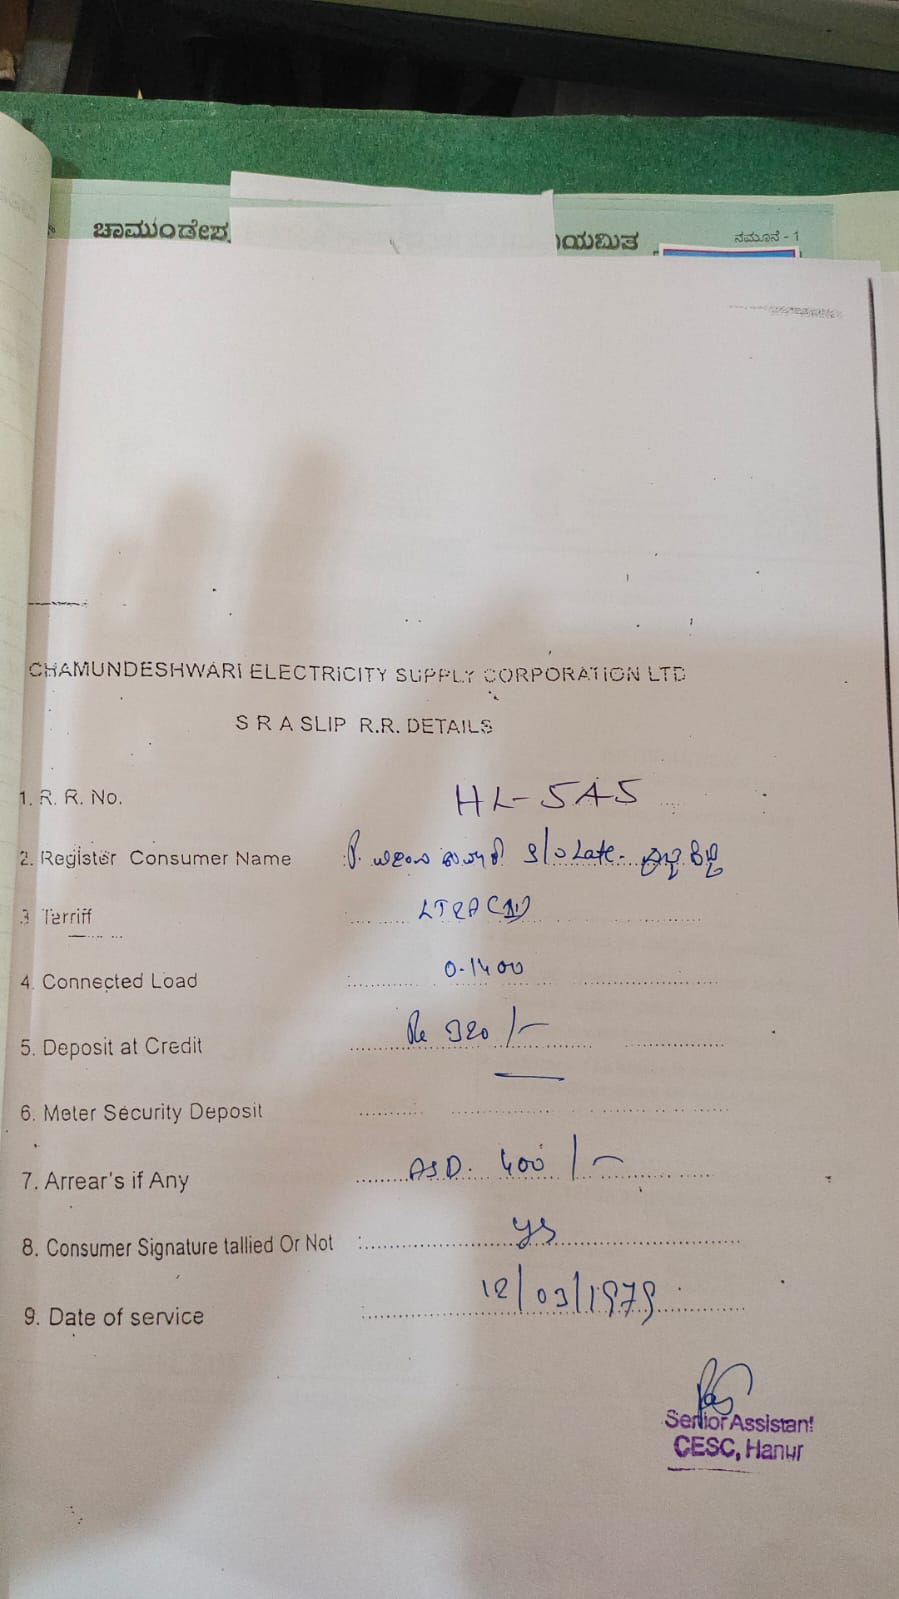 ಚಾಮುಂಡೇಶ್ವ
ಯಮಿತ
ನಮೂನೆ - 1
CHAMUNDESHWARI ELECTRICITY SUPPLY CORPORATION LTD
S R A SLIP R.R. DETAILS
1. R. R. No. HL-5A5
2. Register Consumer Name S/o Late.
3 Terriff
4. Connected Load 0.1400
5. Deposit at Credit Rs 320/-
6. Meter Security Deposit
7. Arrear's if Any ASD. 400/-
8. Consumer Signature tallied Or Not : yes
9. Date of service 12/03/1979
Senior Assistant
CESC, Hanur